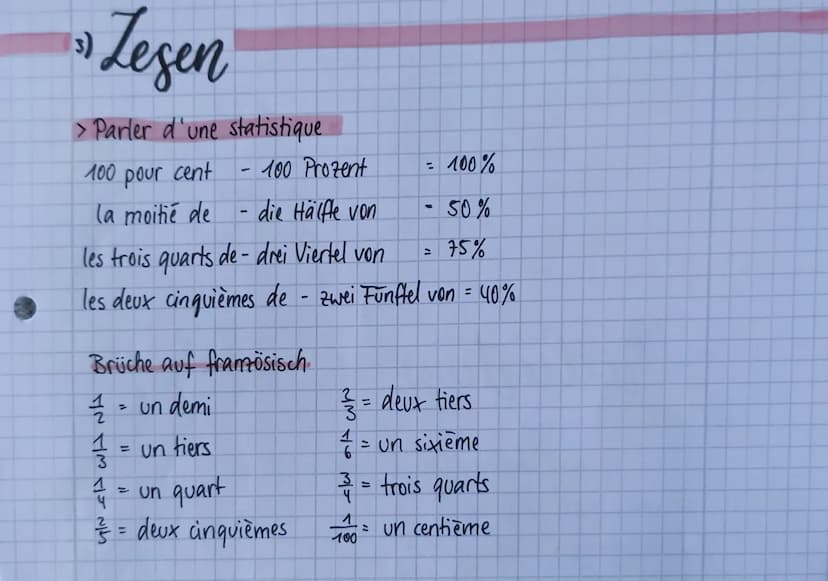 3) Lesen
> Parler d'une statistique
100 pour cent - 100 Prozent = 100%
la moitié de - die Hälfte von - 50%
les trois quarts de - drei Viertel von = 75%
les deux cinquièmes de - zwei Fünftel von = 40%
Brüche auf französisch
1/2 = un demi
1/3 = un tiers
1/4 = un quart
2/5 = deux cinquièmes
2/3 = deux tiers
1/6 = un sixième
3/4 = trois quarts
1/100 = un centième